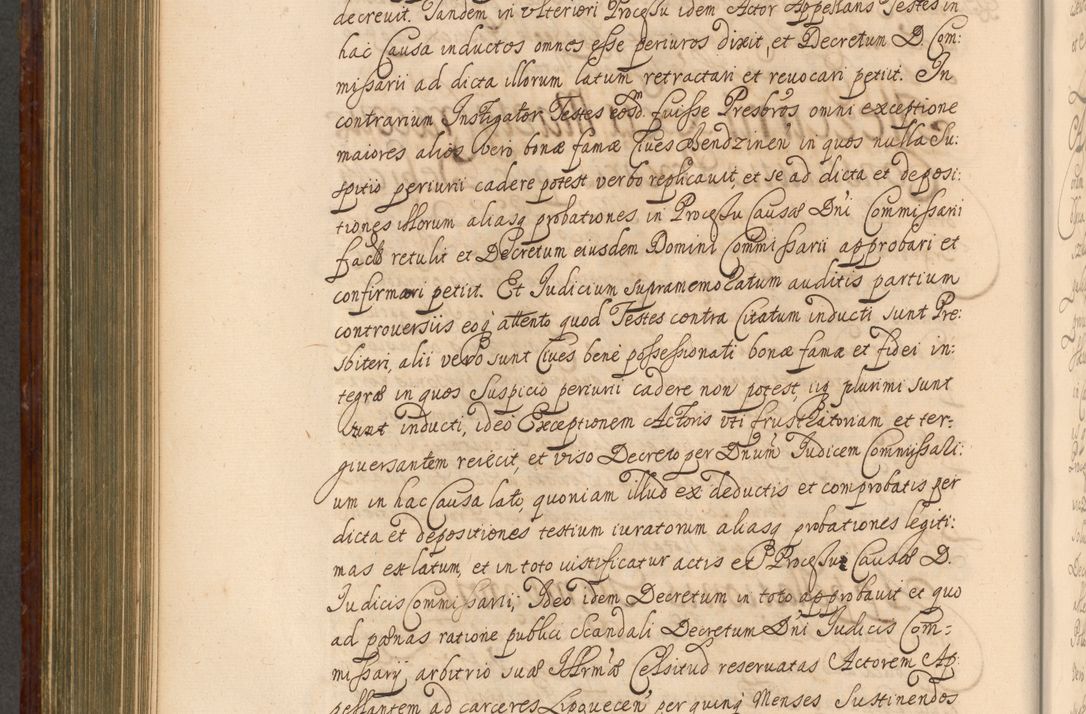 decrevit. Tandem in ulteriori Processu idem Actor Appellans Testes in
hac Causa inductos omnes esse periuros dixit, et Decretum D. Com:
missarii ad dicta illorum latum retractari et revocari petiit. In
contrarium Instigator Testes eosd. fuisse Presbros omni exceptione
maiores alios vero bonæ famæ Cives Bendzinen in quos nulla Su:
spitio periurii cadere potest verbo replicavit, et se ad dicta et deposi:
tiones illorum aliasq probationes in Processu Causæ Dni Commissarii
factas retulit et Decretum eiusdem Domini Commissarii approbari et
confirmari petiit. Et Judicium supramemoratum auditis partium
controversiis eoq attento quod Testes contra Citatum inducti sunt Pre:
sbiteri, alii vero sunt Cives bene possessionati bonæ famæ et fidei in:
tegræ in quos Suspicio periurii cadere non potest, iiq plurimi sunt
inducti, ideo Exceptionem Actoris uti frustratoriam et ter-
giversantem reiecit, et viso Decreto per Dnum Judicem Commissari:
um in hac Causa lato, quoniam illud ex deductis et comprobatis per
dicta et depositiones testium iuratorum aliasq probationes legiti:
mas est latum, et in toto iustificatur actis et Processu Causæ D.
Judicis Commissarii, Ideo idem Decretum in toto approbavit et quo
ad pænas ratione publici scandali Decretum Dni Judicis Com-
missarij arbitrio suæ Illrmæ Celsitud reservatas Actorem Ap:
pellantem ad carceres Lipovecen per quinq Menses Sustinendos